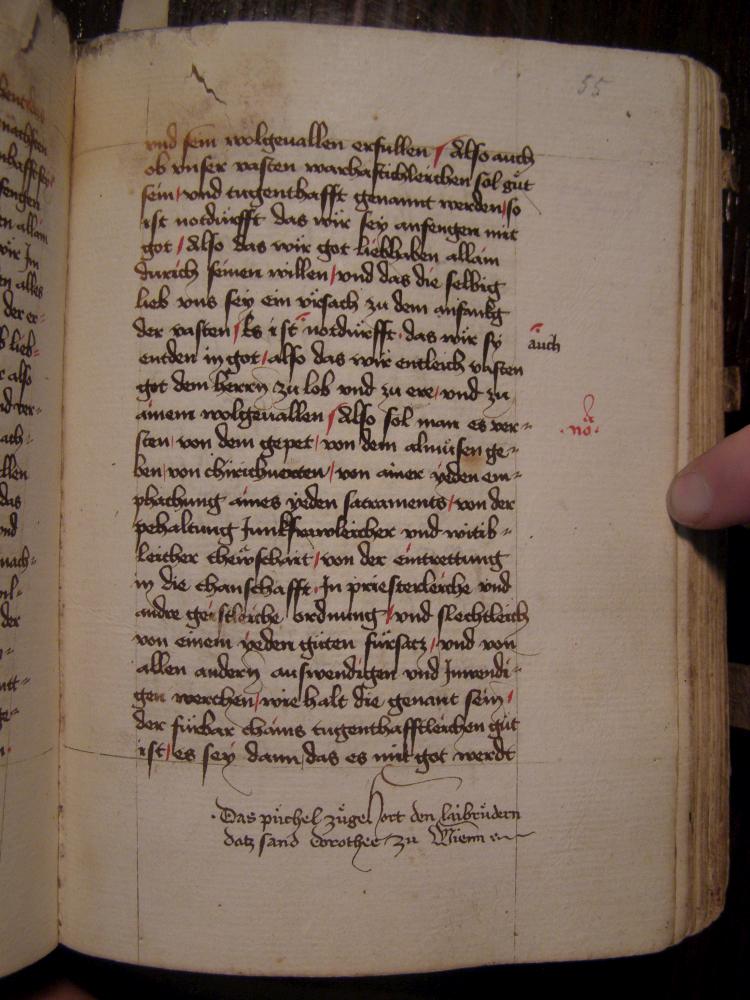 55
vnd sein wolgeuallen erfullen / Also auch
ob vnser vasten warhaftichleichen sol gůt
sein / vnd tugenthafft genannt werden / so
ist notdürfft das wir sey anfengen mit
got / Also das wir got liebhaben allain
durich seinen willen / vnd das die selbig
lieb vns sey ein vrsach zu dem anfankg
der vasten / Es ist notdürfft das wir sy
auch
entden in got / also das wir entleich vasten
got dem herrn zu lob vnd zu ere / vnd zu
ainem wolgeuallen / Also sol man es ver=
no
sten / von dem gepet / von dem almüsen ge=
ben / von chirichuerten / von ainer yeden em=
phachung aines yeden sacraments / von der
pehaltung Junkfrawleicher vnd witib=
leicher chewschait / von der eintrettung
in die chanschafft / In priesterleiche vnd
andre geistleiche ordnung / vnd slechtleich
von einem yeden güten fürsatz / vnd von
allen andern auswendigen vnd Inwendi=
gen werchen / wie halt die genant sein /
der fürbar chains tugenthafftleichen güt
ist / es sey dann das es mit got werdt
Das püchel zügehort den laibrüdern
datz sand dorothee zu Wienn